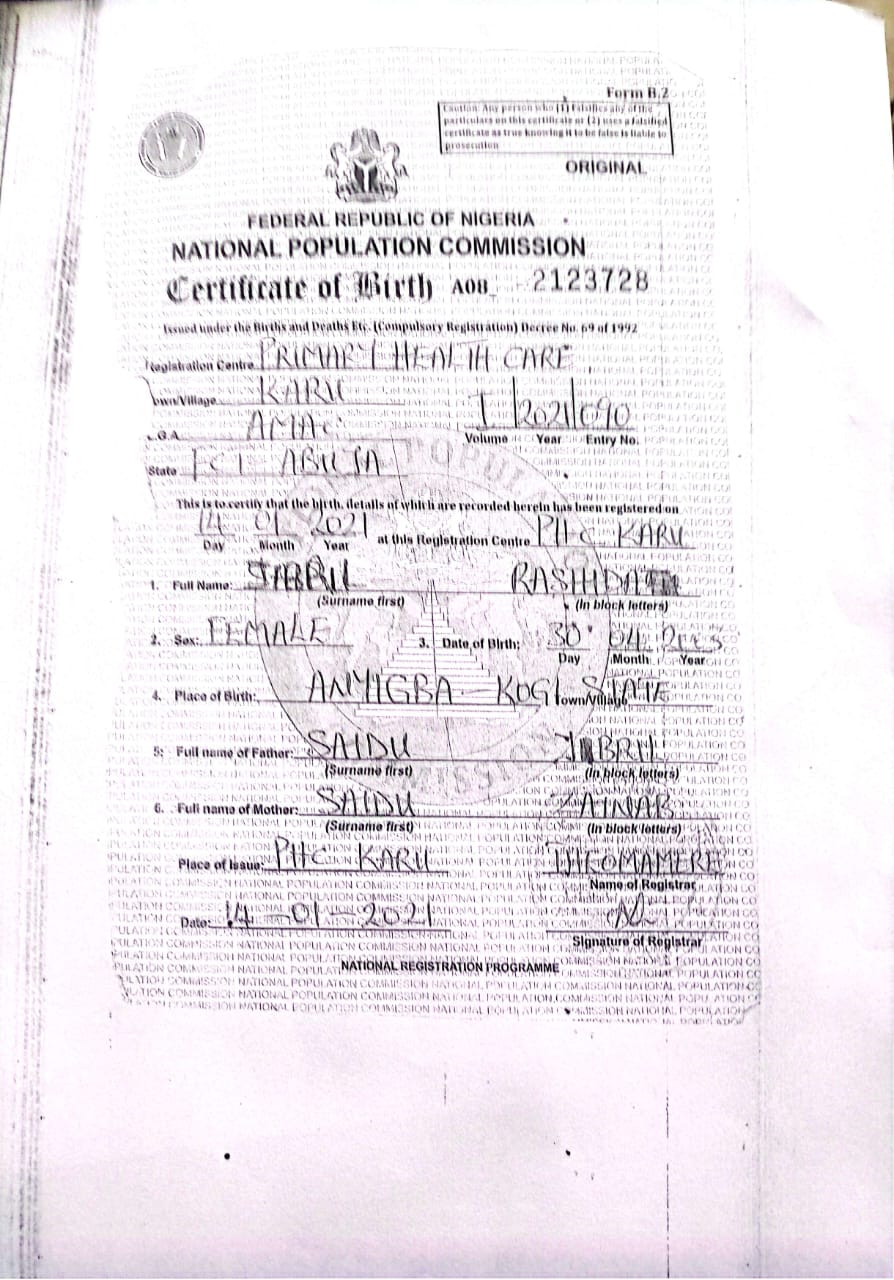 Form B.2
Caution: Any person who (1) falsifies any of the
particulars on this certificate or (2) uses a falsified
certificate as true knowing it to be false is liable to
prosecution
ORIGINAL
FEDERAL REPUBLIC OF NIGERIA
NATIONAL POPULATION COMMISSION
Certificate of Birth AOB 2123728
Issued under the Births and Deaths Etc. (Compulsory Registration) Decree No. 69 of 1992
Registration Centre PRIMARY HEALTH CARE
Town/Village KARU
L.G.A. AMAC I/2021/090
Volume Year Entry No.
State FCT ABUJA
This is to certify that the birth, details of which are recorded herein has been registered on
14 01 2021 at this Registration Centre PHC KARU
Day Month Year
1. Full Name: JIBRIL RASHIDAT
(Surname first) (In block letters)
2. Sex: FEMALE 3. Date of Birth: 30 04
Day Month Year
4. Place of Birth: ANYIGBA KOGI STATE
Town/Village
5: Full name of Father: SAIDU JIBRIL
(Surname first) (In block letters)
6. Full name of Mother: SAIDU ZAINAB
(Surname first) (In block letters)
Place of Issue: PHC KARU
Name of Registrar
Date: 14 - 01 - 2021
Signature of Registrar
NATIONAL REGISTRATION PROGRAMME